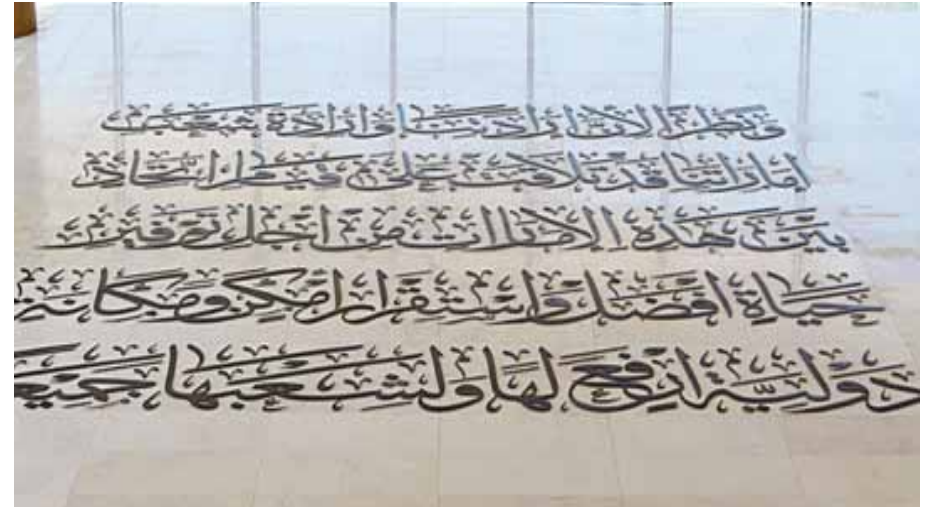 ونظرا لان ارادتنا وارادة شعب
اماراتنا قد تلاقت على قيام اتحاد
بين هذه الامارات من اجل توفير
حياة افضل واستقرار امكن ومكانة
دولية ارفع لها ولشعبها جميعـ